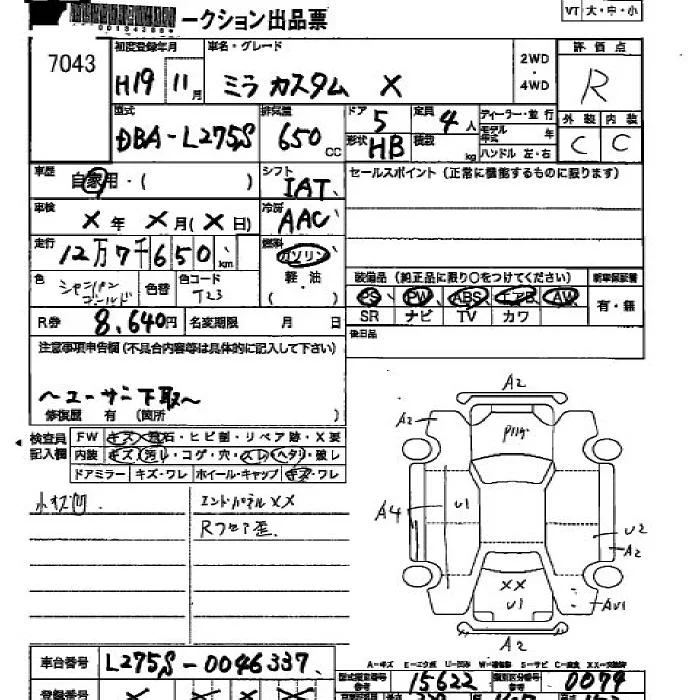 ークション出品票
VT 大・中・小
7043
初度登録年月 車名・グレード
H19 11月 ミラ カスタム X
2WD
・
4WD
評価点
R
型式 排気量 ドア 定員 ディーラー・並行
DBA-L275S 650cc 5 4人
モデル年式 年
外装 内装
形状 HB 積載 kg ハンドル 左・右
C C
車歴 自家用・( )
シフト IAT
セールスポイント (正常に機能するものに限ります)
車検 X年 X月(X日)
冷房 AAC
走行 12万7千650km
燃料 ガソリン
軽・油
( )
色 シャンパンゴールド 色替 色コード T23
装備品 (純正品に限り○をつけてください) 新車保証書
PS PW ABS エアB AW 有・無
SR ナビ TV カワ
R券 8,640円 名変期限 月 日
後日品
注意事項申告欄 (不具合内容等は具体的に記入して下さい)
~ユーザー下取~
修復歴 有 (箇所 )
検査員記入欄
FW キズ・飛石・ヒビ割・リペア跡・X要
内装 キズ・汚レ・コゲ・穴・スレ・ヘタリ・破レ
ドアミラー キズ・ワレ ホイール・キャップ キズ・ワレ
小キズ凹
エンドパネルXX
Rフロア歪
A2
A2
A4
U1
U2
A2
XX
U1
AU1
A2
A-キズ E-エクボ U-凹み W-補修跡 S-サビ C-腐食 XX-交換済
車台番号 L275S-0046337
15622 0074
登録番号